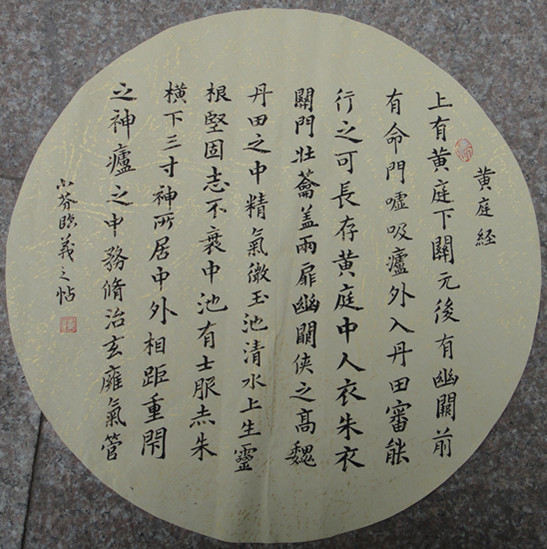 黄庭経
上有黄庭下關元後有幽闕前
有命門噓吸廬外入丹田審能
行之可長存黄庭中人衣朱衣
關門壯蘥盖兩扉幽闕俠之高魏
丹田之中精氣微玉池清水上生靈
根堅固志不衰中池有士服赤朱
橫下三寸神所居中外相距重閇
之神廬之中務脩治玄廱氣管
小芬臨羲之帖